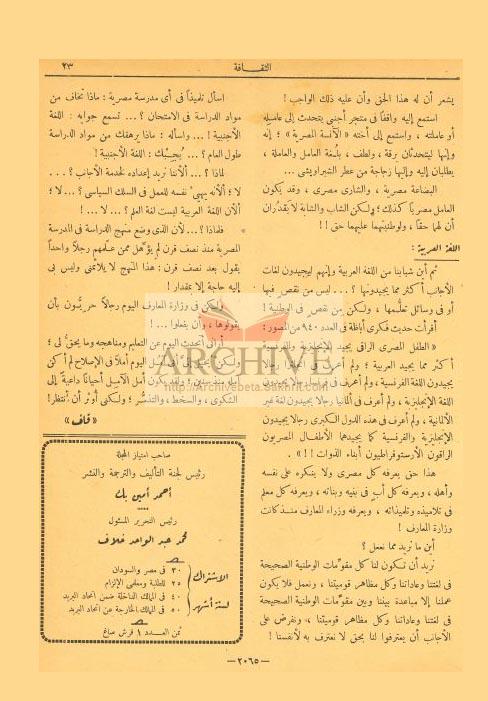 الثقافة
٢٣
يشعر أن له هذا الحق وأن عليه ذلك الواجب !
استمع إليه واقفاً في متجر أجنبي يتحدث إلى عامله
أو عاملته ، واستمع إلى أخته « الآنسة المصرية » ؛ إنه
وإنها ليتحدثان برقة ، ولطف ، بلغة العامل والعاملة ،
يطلبان إليه وإليها زجاجة من عطر الشبراويشي ...
البضاعة مصرية ، والشارى مصرى ، وقد يكون
العامل مصريا كذلك ؛ ولكن الشاب والشابة لا يقدران
أن لهما حقا ، ولوطنيتهما عليهما حق !!
اللغة العربية :
ثم أين شبابنا من اللغة العربية وإنهم ليجيدون لغات
الأجانب أكثر مما يجيدونها ؟ ... ليس من نقص فيها
أو فى وسائل تعلمها ، ولكن من نقص فى الوطنية !
أقرأت حديث فكرى أباظة فى العدد ٩٤٠ من المصور :
« الطفل المصرى الراقى يجيد الإنجليزية والفرنسية
أكثر مما يجيد العربية ؛ ولم أعرف فى انجلترا رجالا
يجيدون اللغة الفرنسية ، ولم أعرف فى فرنسا رجالا يجيدون
اللغة الإنجليزية ، ولم أعرف فى ألمانيا رجالا يجيدون لغة غير
الألمانية ، ولم أعرف فى هذه الدول الكبرى رجالا يجيدون
الإنجليزية والفرنسية كما يجيدهما الأطفال المصريون
الراقون الأرستوقراطيون أبناء الذوات !! » .
هذا حق يعرفه كل مصرى ولا ينكره على نفسه
وأهله ، ويعرفه كل أب فى بنيه وبناته ، ويعرفه كل معلم
فى تلاميذه وتلميذاته ، ويعرفه وزراء المعارف منذ كانت
وزارة المعارف !
أين ما نريد مما نعمل ؟
نريد أن تكون لنا كل مقومات الوطنية الصحيحة
فى لغتنا وعاداتنا وكل مظاهر قوميتنا ، ونعمل فلا يكون
عملنا إلا مباعدة بيننا وبين مقومات الوطنية الصحيحة
فى لغتنا وعاداتنا وكل مظاهر قوميتنا ، ونفرض على
الأجانب أن يعترفوا لنا بحق لا نعترف به لأنفسنا !
اسأل تلميذاً فى أى مدرسة مصرية : ماذا تخاف من
مواد الدراسة فى الامتحان ؟ ... تسمع جوابه : اللغة
الأجنبية ! ... واسأله : ماذا يرهقك من مواد الدراسة
طول العام ؟ ... يُجيبك : اللغة الأجنبية !
لماذا ؟ ... ألأننا نريد إعداده لخدمة الأجانب ؟ ...
لا ؛ ألأنه يهيئ نفسه للعمل فى السلك السياسى ؟ .. لا ؛
ألأن اللغة العربية ليست لغة العلم ؟ .. لا ... !
فلماذا ؟ ... لأن الذى وضع منهج الدراسة فى المدرسة
المصرية منذ نصف قرن لم يؤهل ممن علمهم رجلا واحداً
يقول بعد نصف قرن : هذا المنهج لا يلائمنى وليس بى
إليه حاجة إلا بمقدار !
ولكن فى وزارة المعارف اليوم رجالا حريّون بأن
يقولوها ، وأن يفعلوا ... !
أرانى أتحدث اليوم عن التعليم ومناهجه وما يحق لى ؛
ولكن اليوم أملا فى الإصلاح لم أكن
منذ سنين ؛ ولقد يكون أمل الآمل أحيانا داعية إلى
الشكوى ، والسخط ، والتذمر ؛ ولكنى أوثر أن أنتظر !
« قاف »
ARCHIVE
http://Archivebeta.Sakhrit.com
صاحب امتياز المجلة
رئيس لجنة التأليف والترجمة والنشر
أحمد أمين بك
رئيس التحرير المسئول
محمد عبد الواحد خلاف
الاشتراك لستة أشهر
٣٠ فى مصر والسودان
٢٥ للطلبة ومعلمى الإلزام
٤٠ فى الممالك الداخلة ضمن اتحاد البريد
٥٠ فى الممالك الخارجة عن اتحاد البريد
ثمن العدد ١ قرش صاغ
— ٢٠٦٥ —